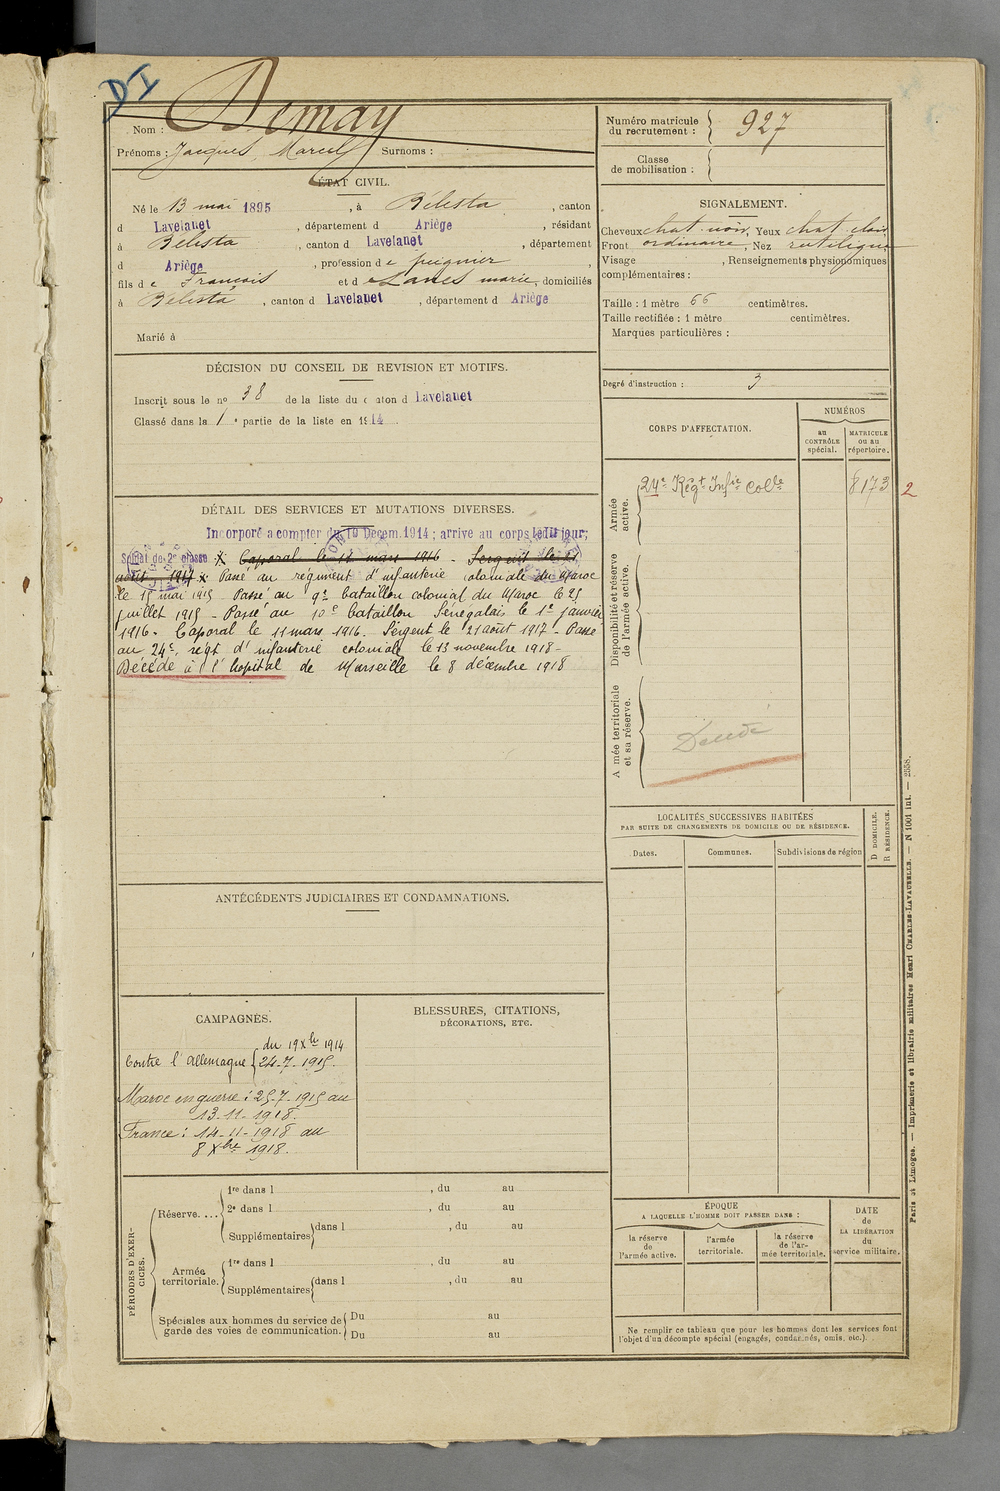 DI
Nom : Demay
Prénoms : Jacques Marcel Surnoms :
ÉTAT CIVIL.
Né le 13 mai 1895, à Bélesta, canton
d Lavelanet, département d Ariège, résidant
à Bélesta, canton d Lavelanet, département
d Ariège, profession de peignier,
fils de François et de Lanes marie, domiciliés
à Bélesta, canton d Lavelanet, département d Ariège
Marié à
DÉCISION DU CONSEIL DE REVISION ET MOTIFS.
Inscrit sous le no 38 de la liste du c ton d Lavelanet
Classé dans la 1 e partie de la liste en 1914.
DÉTAIL DES SERVICES ET MUTATIONS DIVERSES.
Incorporé a compter du 19 Décem. 1914 ; arrive au corps ledit jour;
Soldat de 2e classe X Caporal le 11 mars 1916 - Sergent le 21
août 1917 X Passé au régiment d'infanterie coloniale du Maroc
le 15 mai 1915 Passé au 9e bataillon colonial du Maroc le 25
juillet 1915 - Passé au 10e bataillon Sénégalais le 1er janvier
1916 - Caporal le 11 mars 1916. Sergent le 21 août 1917 - Passé
au 24e regt d'infanterie coloniale le 13 novembre 1918 -
Décédé à l'hopital de Marseille le 8 décembre 1918
ANTÉCÉDENTS JUDICIAIRES ET CONDAMNATIONS.
CAMPAGNES.
Contre l'allemagne { du 19 Xbre 1914
24-7-1915.
Maroc en guerre : 25-7-1915 au
13-11-1918.
France : 14-11-1918 au
8 Xbre 1918.
BLESSURES, CITATIONS,
DÉCORATIONS, ETC.
PÉRIODES D'EXER-
CICES.
Réserve....
1re dans l , du au
2e dans l , du au
Supplémentaires dans l , du au
Armée
territoriale.
1re dans l , du au
Supplémentaires dans l , du au
Spéciales aux hommes du service de
garde des voies de communication.
Du au
Du au
Numéro matricule
du recrutement : 927
Classe
de mobilisation :
SIGNALEMENT.
Cheveux chat. noir, Yeux chat. clair
Front ordinaire, Nez rectiligne
Visage , Renseignements physionomiques
complémentaires :
Taille : 1 mètre 66 centimètres.
Taille rectifiée : 1 mètre centimètres.
Marques particulières :
Degré d'instruction : 3
CORPS D'AFFECTATION.
NUMÉROS
au
CONTRÔLE
spécial.
MATRICULE
ou au
répertoire.
Armée
active.
24e Régt Infie Colle 8173 2
Disponibilité et réserve
de l'armée active.
A mée territoriale
et sa réserve.
Décédé
LOCALITÉS SUCCESSIVES HABITÉES
PAR SUITE DE CHANGEMENTS DE DOMICILE OU DE RÉSIDENCE.
Dates.
Communes.
Subdivisions de région
D DOMICILE.
R RÉSIDENCE.
ÉPOQUE
A LAQUELLE L'HOMME DOIT PASSER DANS :
la réserve
de
l'armée active.
l'armée
territoriale.
la réserve
de l'ar-
mée territoriale.
DATE
de
LA LIBÉRATION
du
service militaire.
Ne remplir ce tableau que pour les hommes dont les services font
l'objet d'un décompte spécial (engagés, condamnés, omis, etc.).
Paris et Limoges. — Imprimerie et librairie militaires Henri CHARLES-LAVAUZELLE. — N 1001 int. — 2558.